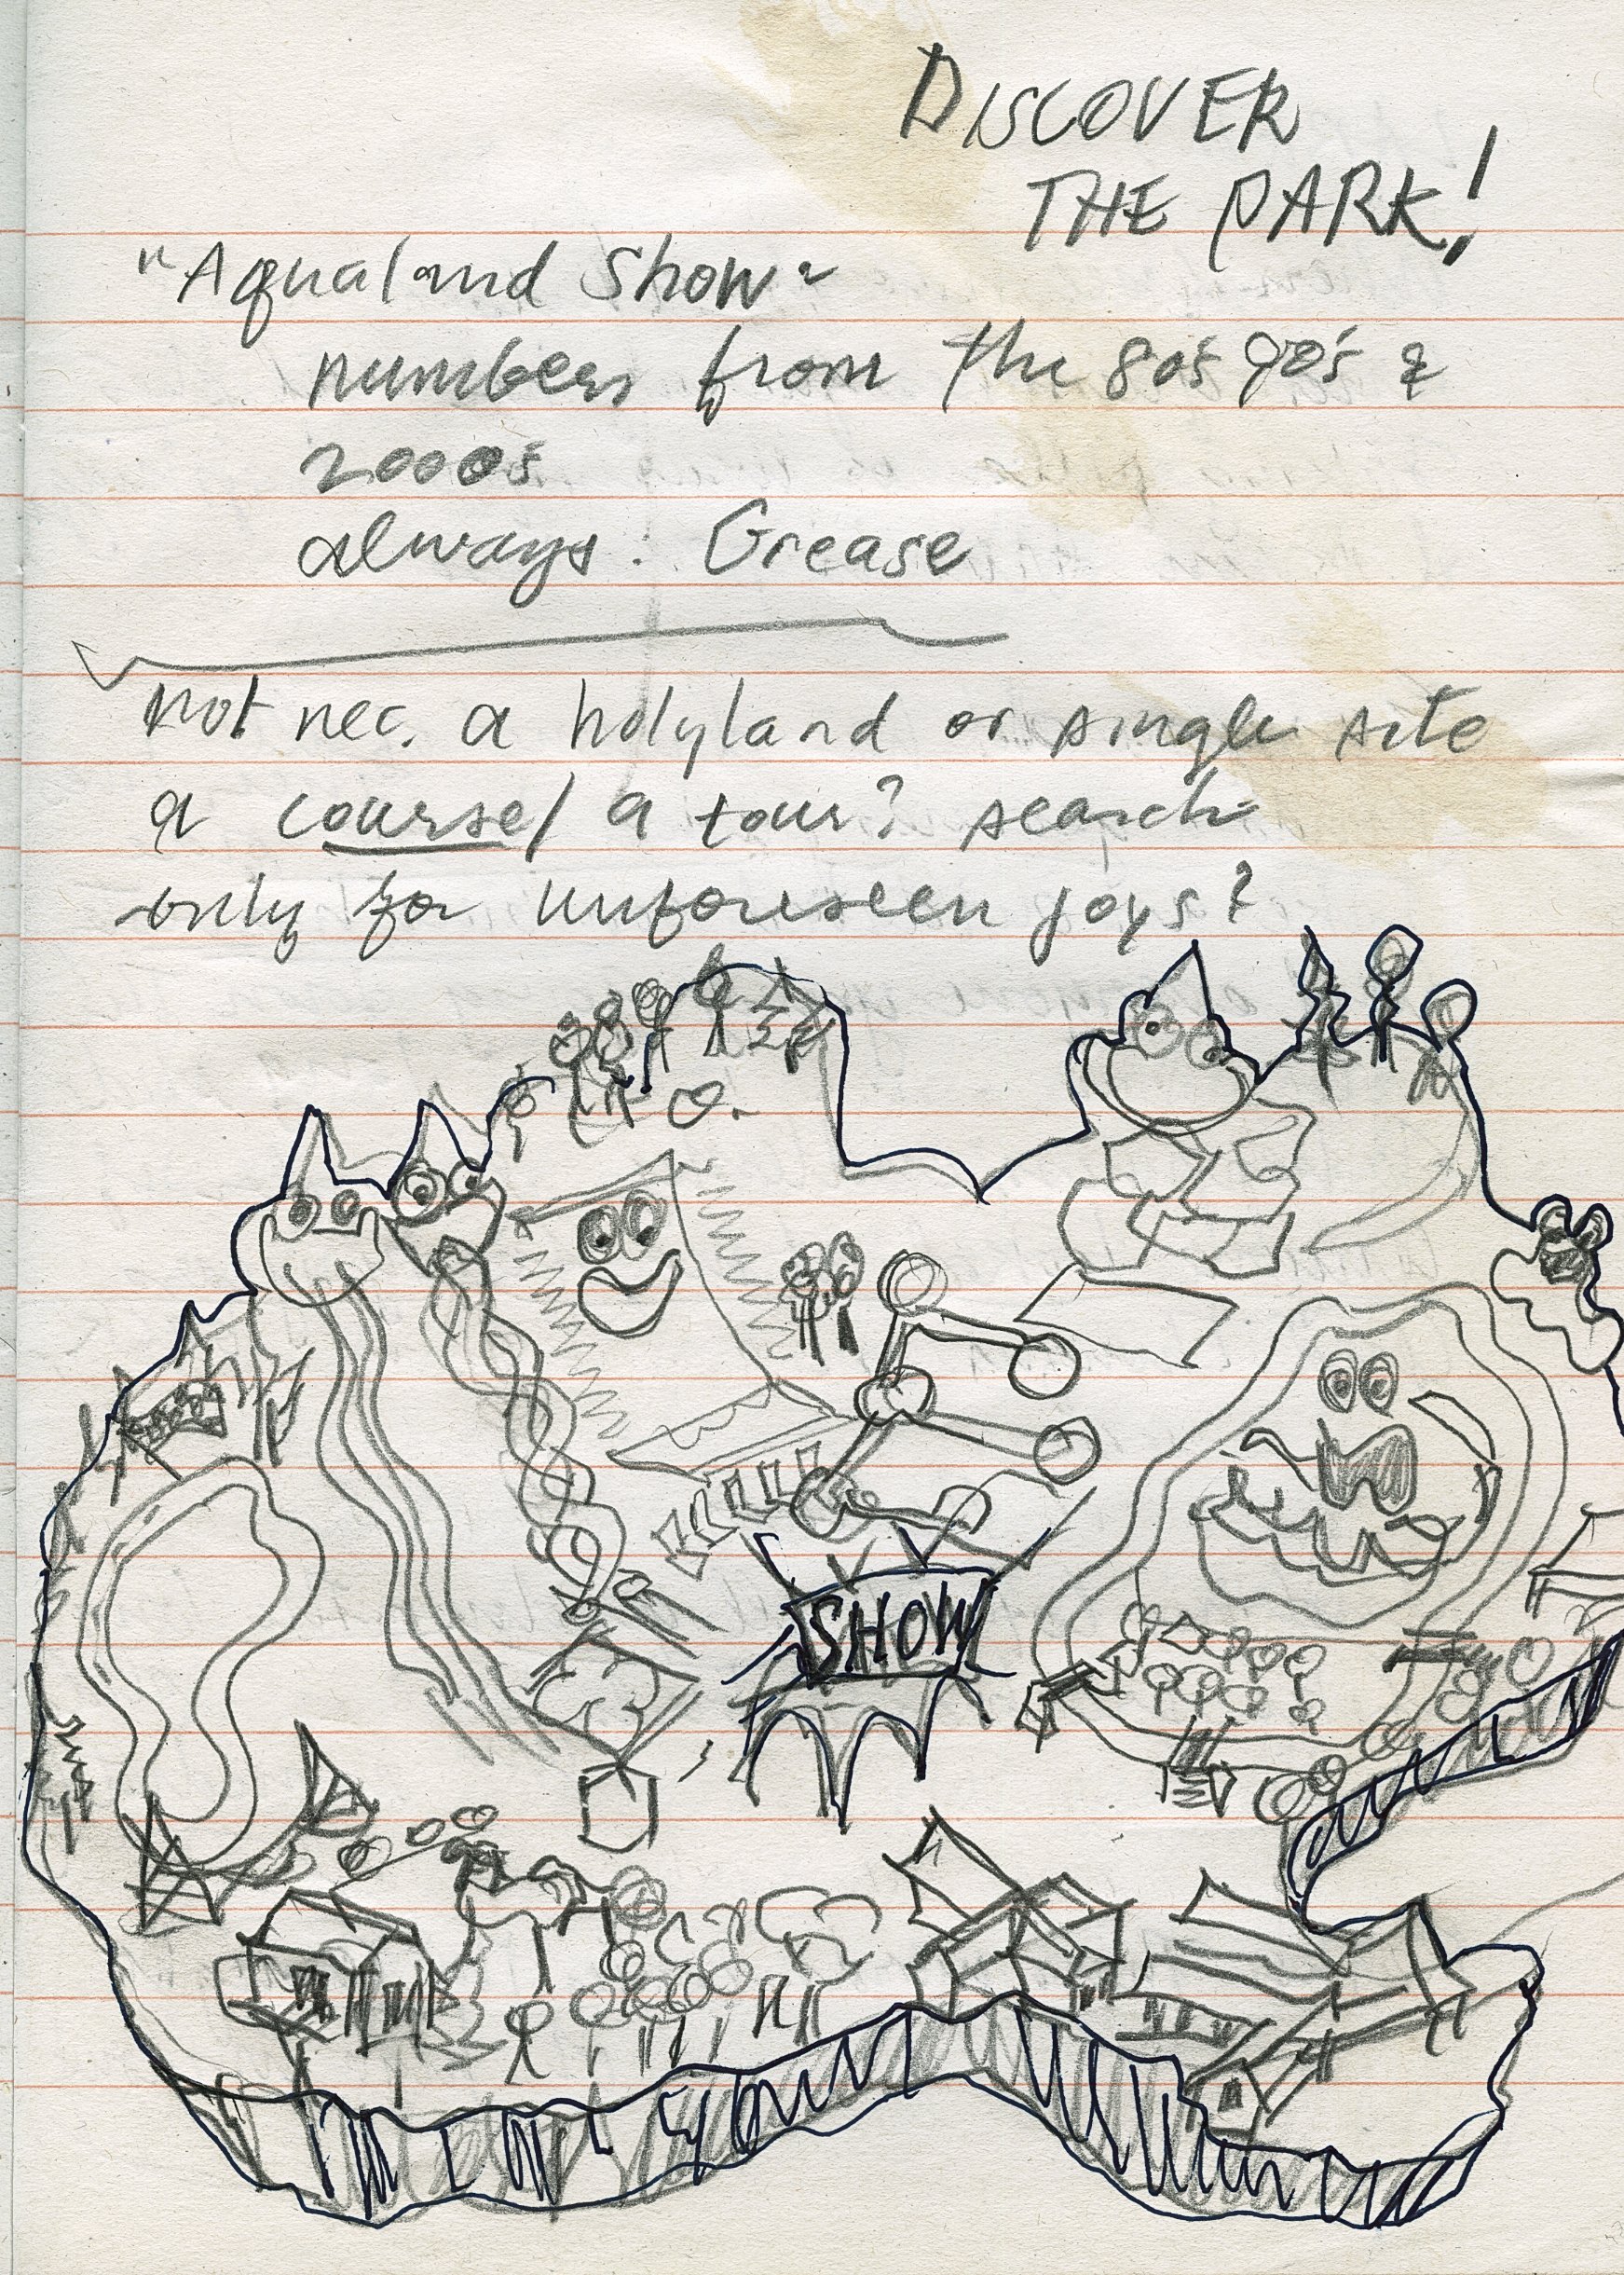 DISCOVER
THE PARK!
"Aqualand Show"
numbers from the 80's 90's &
2000s
always: Grease
not nec. a holyland or single site
a course/ a tour? search
only for unforeseen joys?
SHOW